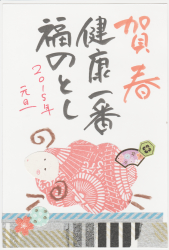 賀春
健康一番
福のとし
2015年
元旦